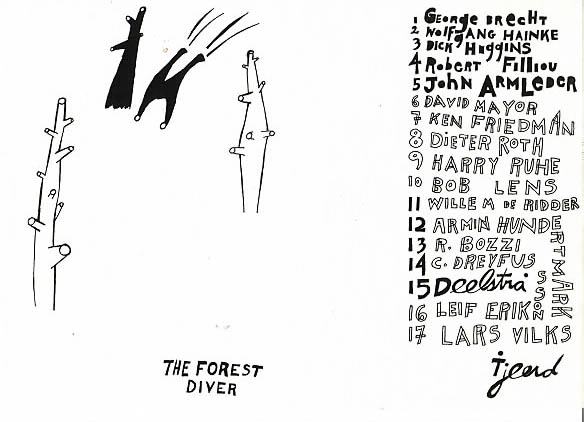 1 GEORGE BRECHT
2 WOLFGANG HAINKE
3 DICK HIGGINS
4 ROBERT FILLIOU
5 JOHN ARMLEDER
6 DAVID MAYOR
7 KEN FRIEDMAN
8 DIETER ROTH
9 HARRY RUHE
10 BOB LENS
11 WILLEM DE RIDDER
12 ARMIN HUNDERTMARK
13 R. BOZZI
14 C. DREYFUS
15 Deelstra
16 LEIF ERIKSSON
17 LARS VILKS
Tjeerd
THE FOREST
DIVER